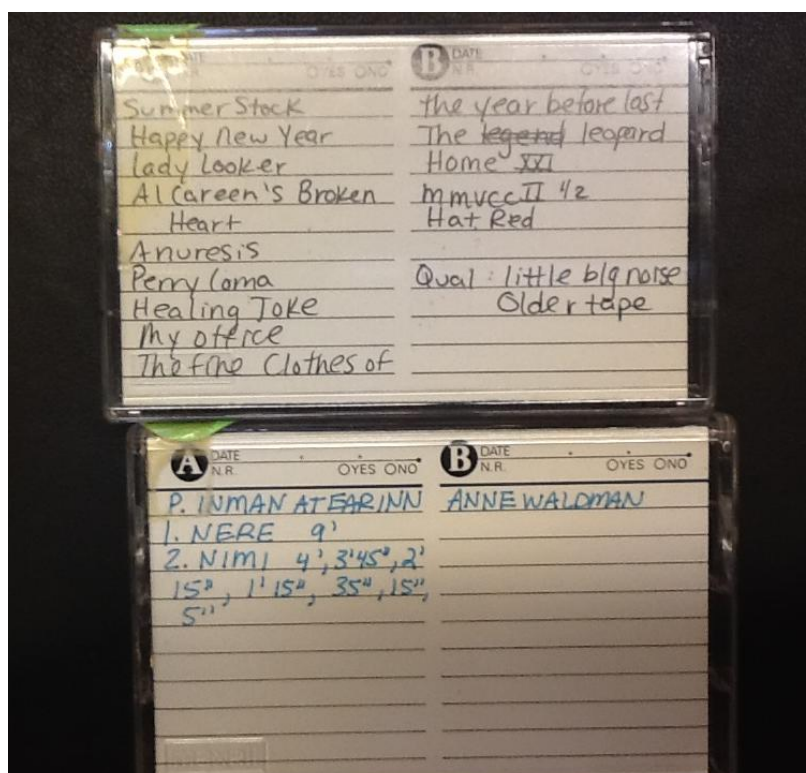 B DATE
N.R. OYES ONO
OYES ONO
Summer Stock
Happy New Year
Lady Looker
Al Careen's Broken
Heart
Anuresis
Perry Coma
Healing Joke
My office
The fine Clothes of
the year before last
The legend leopard
Home XXI
mmvccII 1/2
Hat Red
Qual : little big noise
Older tape
A DATE
N.R. OYES ONO
P. INMAN AT EAR INN
1. NERE 9'
2. NIMI 4', 3'45", 2'
15", 1'15", 35", 15",
5"
B DATE
N.R. OYES ONO
ANNE WALDMAN